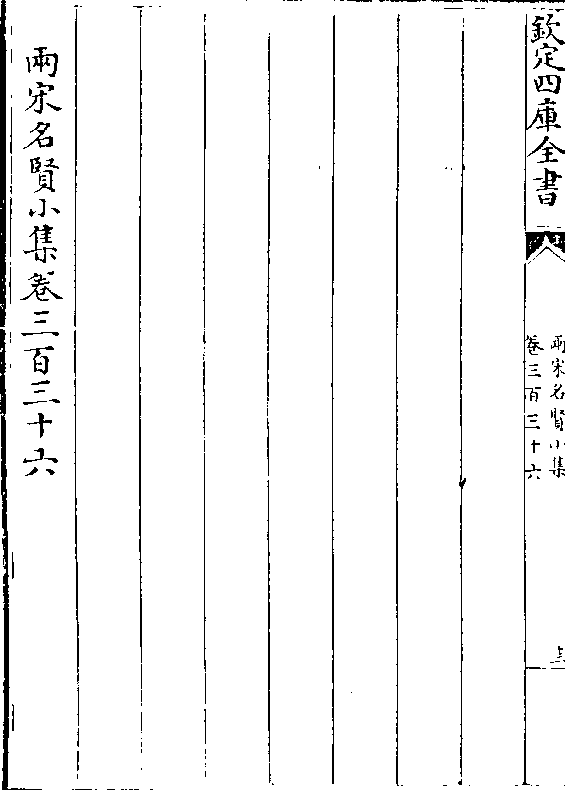 欽定四庫全書
兩宋名賢小集
卷三百三十六
兩宋名賢小集卷三百三十六